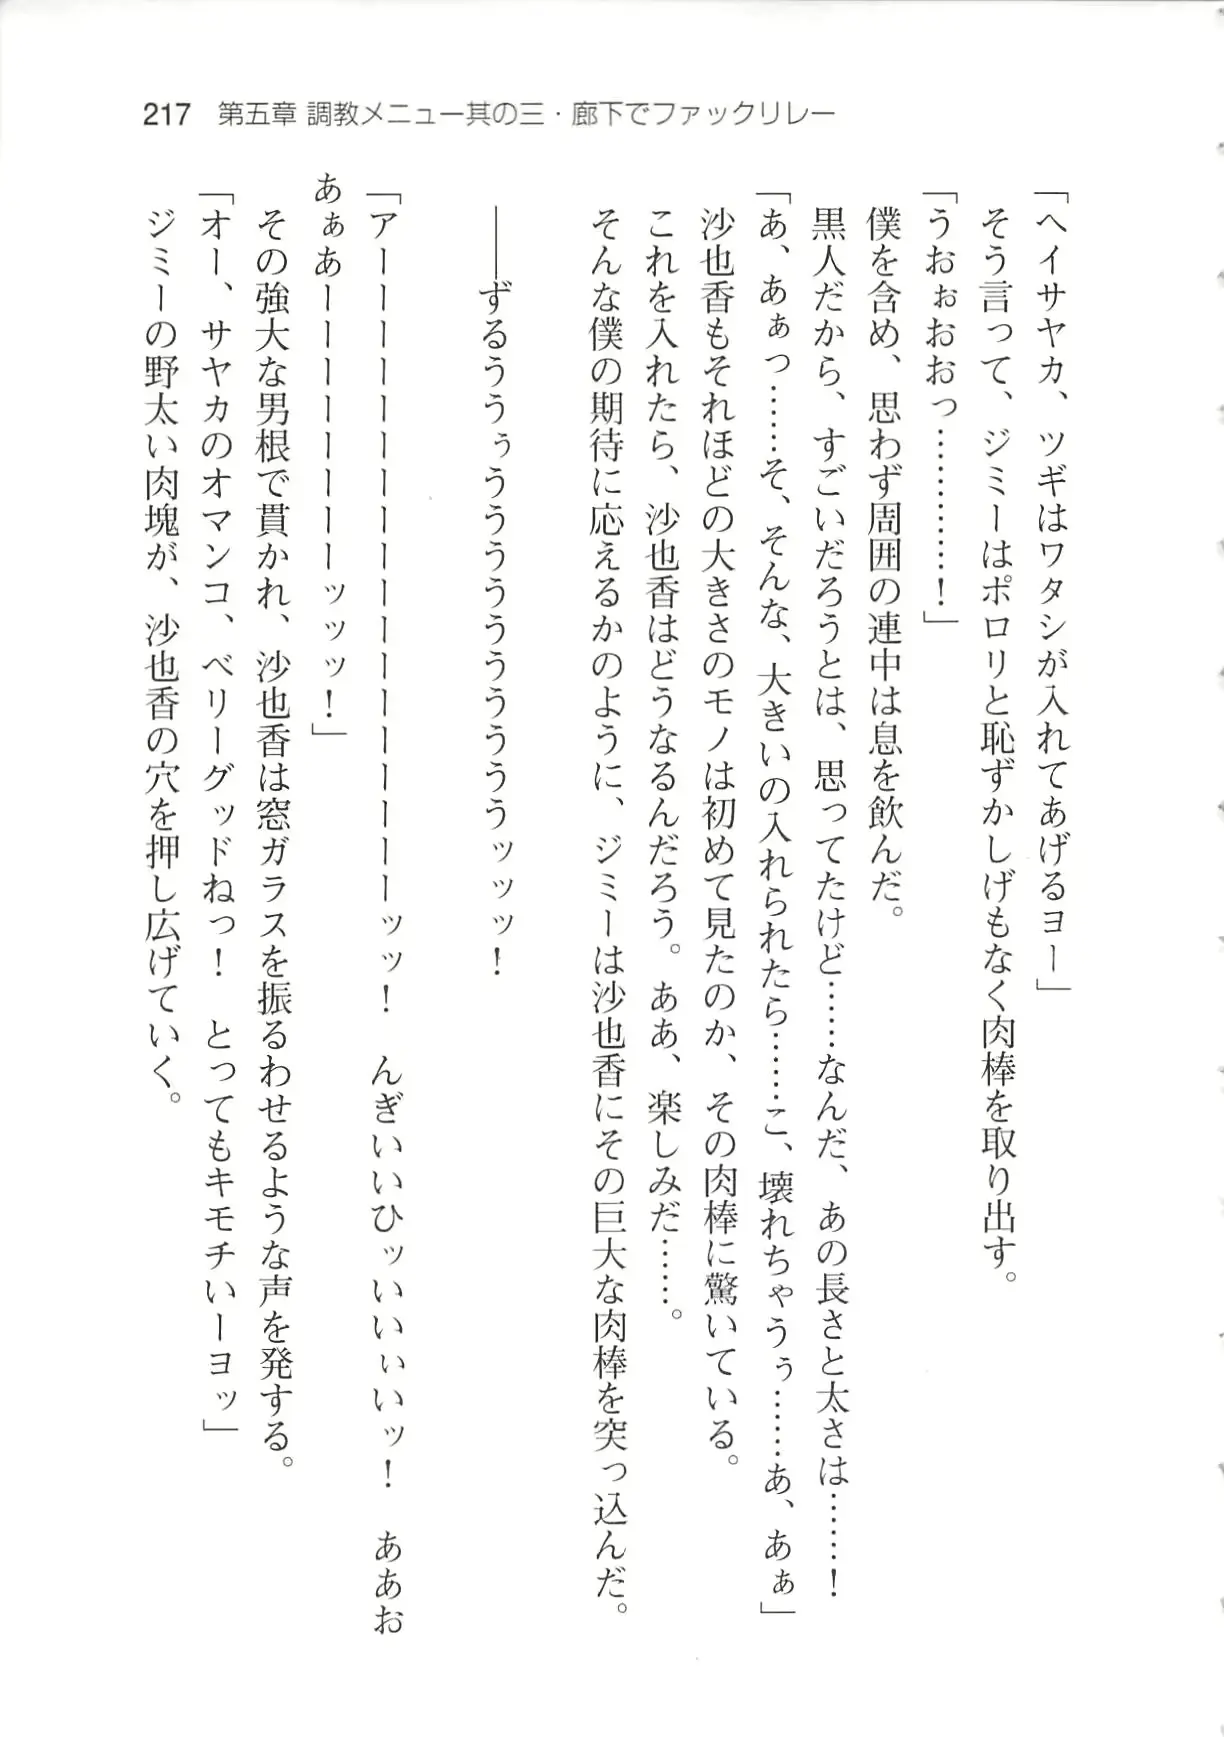 217 第五章 調教メニュー其の三・廊下でファックリレー
「ヘイサヤカ、ツギはワタシが入れてあげるヨー」
そう言って、ジミーはポロリと恥ずかしげもなく肉棒を取り出す。
「うおぉおおっ…………！」
僕を含め、思わず周囲の連中は息を飲んだ。
黒人だから、すごいだろうとは、思ってたけど……なんだ、あの長さと太さは……！
「あ、あぁっ……そ、そんな、大きいの入れられたら……こ、壊れちゃうぅ……あ、あぁ」
沙也香もそれほどの大きさのモノは初めて見たのか、その肉棒に驚いている。
これを入れたら、沙也香はどうなるんだろう。ああ、楽しみだ……。
そんな僕の期待に応えるかのように、ジミーは沙也香にその巨大な肉棒を突っ込んだ。
――ずるううぅうううううううううッッッ！
「アーーーーーーーーーーーーーーーーーッッ！　んぎいいひッいいぃいッ！　ああお
あぁあーーーーーーーーッッッ！」
その強大な男根で貫かれ、沙也香は窓ガラスを振るわせるような声を発する。
「オー、サヤカのオマンコ、ベリーグッドねっ！　とってもキモチいーヨッ」
ジミーの野太い肉塊が、沙也香の穴を押し広げていく。